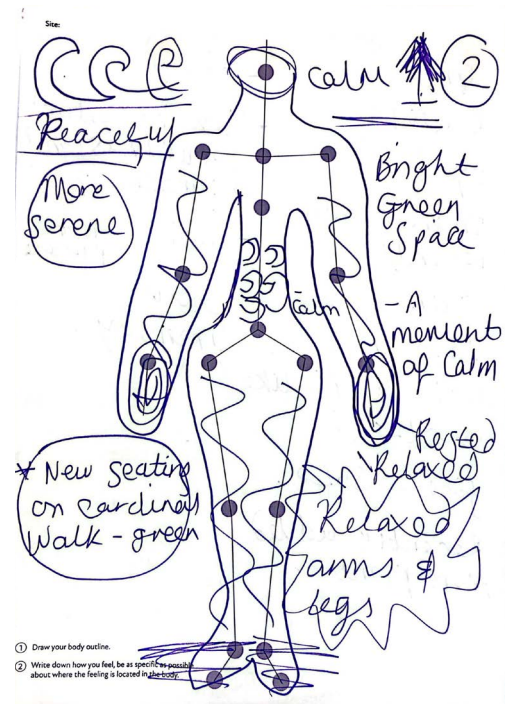 Site:
calm
2
Peaceful
More
serene
Bright
Green
Space
Calm
- A
moment
of Calm
Rested
Relaxed
* New seating
on cardinals
Walk - green
Relaxed
arms &
legs
1 Draw your body outline.
2 Write down how you feel, be as specific as possible
about where the feeling is located in the body.